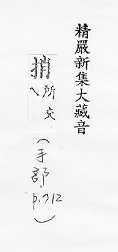 精嚴新集大藏音
捎所交
(手部, p.712)